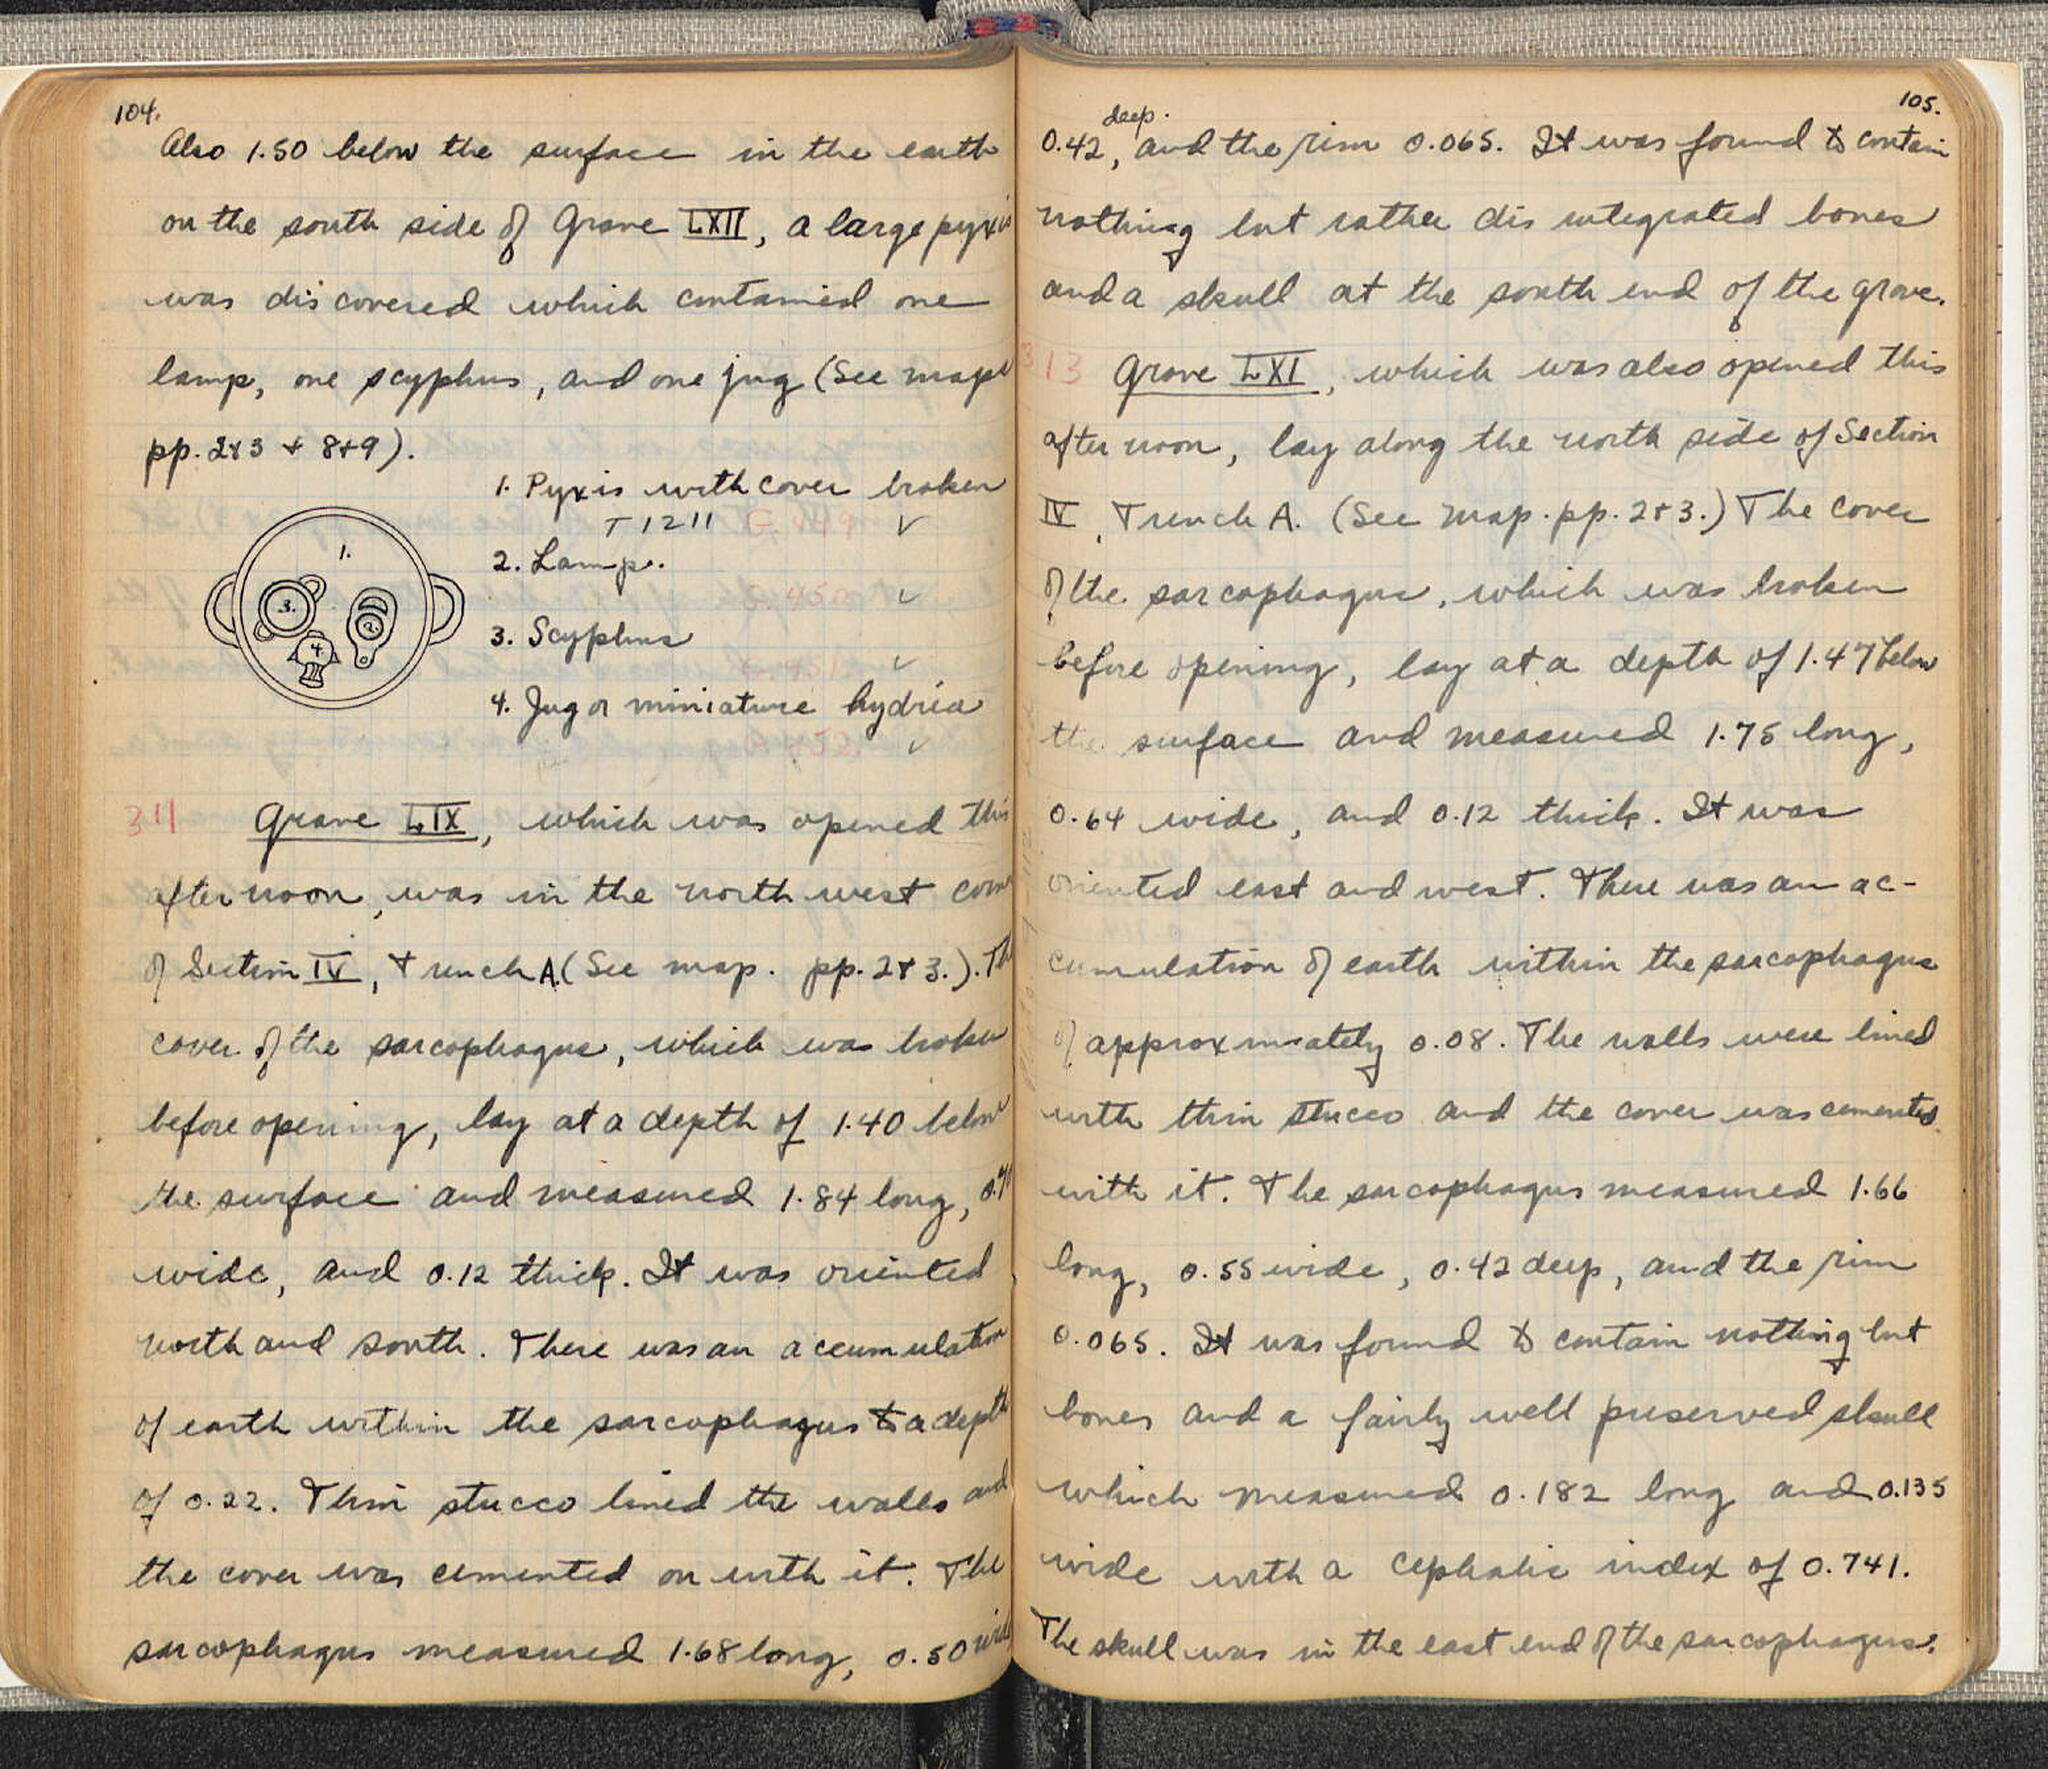 104.
Also 1.50 below the surface in the earth
on the south side of Grave LXII, a large pyxis
was discovered which contained one
lamp, one scyphus, and one jug (See maps
pp. 2+3 + 8+9).
1. Pyxis with cover broken
T 1211 G. 449 ✓
2. Lamp.
G. 450 ✓
3. Scyphus
G. 451. ✓
4. Jug or miniature hydria
G. 452. ✓
1.
2.
3.
4
311 Grave LIX, which was opened this
afternoon, was in the north west corner
of Section IV, Trench A. (See map. pp. 2+3.). The
cover of the sarcophagus, which was broken
before opening, lay at a depth of 1.40 below
the surface and measured 1.84 long,
wide, and 0.12 thick. It was oriented
north and south. There was an accumulation
of earth within the sarcophagus to a depth
of 0.22. Thin stucco lined the walls and
the cover was cemented on with it. The
sarcophagus measured 1.68 long, 0.50 wide
105.
deep.
0.42, and the rim 0.065. It was found to contain
nothing but rather disintegrated bones
and a skull at the south end of the grave.
313 Grave LXI, which was also opened this
afternoon, lay along the north side of Section
IV, Trench A. (See map. pp. 2+3.) The cover
of the sarcophagus, which was broken
before opening, lay at a depth of 1.47 below
the surface and measured 1.75 long,
0.64 wide, and 0.12 thick. It was
oriented east and west. There was an ac-
cumulation of earth within the sarcophagus
of approximately 0.08. The walls were lined
with thin stucco and the cover was cemented
with it. The sarcophagus measured 1.66
long, 0.55 wide, 0.42 deep, and the rim
0.065. It was found to contain nothing but
bones and a fairly well preserved skull
which measured 0.182 long and 0.135
wide with a cephalic index of 0.741.
The skull was in the east end of the sarcophagus.